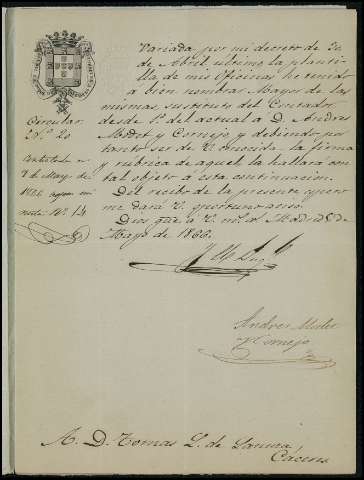 Variada por mi decreto de 20
de Abril último la planti-
lla de mis Oficinas, he venido
á bien nombrar Mayor de las
mismas sustituto del Contador
desde 1º del actual a D. Andres
y Cornejo, y debiendo por
tanto ser de V. conocida la firma
y rúbrica de aquel la hallará con
tal objeto á esta continuacion.
Del recibo de la presente espero
me dará V. oportuno aviso.
Dios gue a V. ms. as. Madrid 5 de
Mayo de 1866.
Circular
Nº 20
Contestada en
7 de Mayo de
1866
nº 14
Andres
y Cornejo
A. D. Tomas L. de
Cáceres